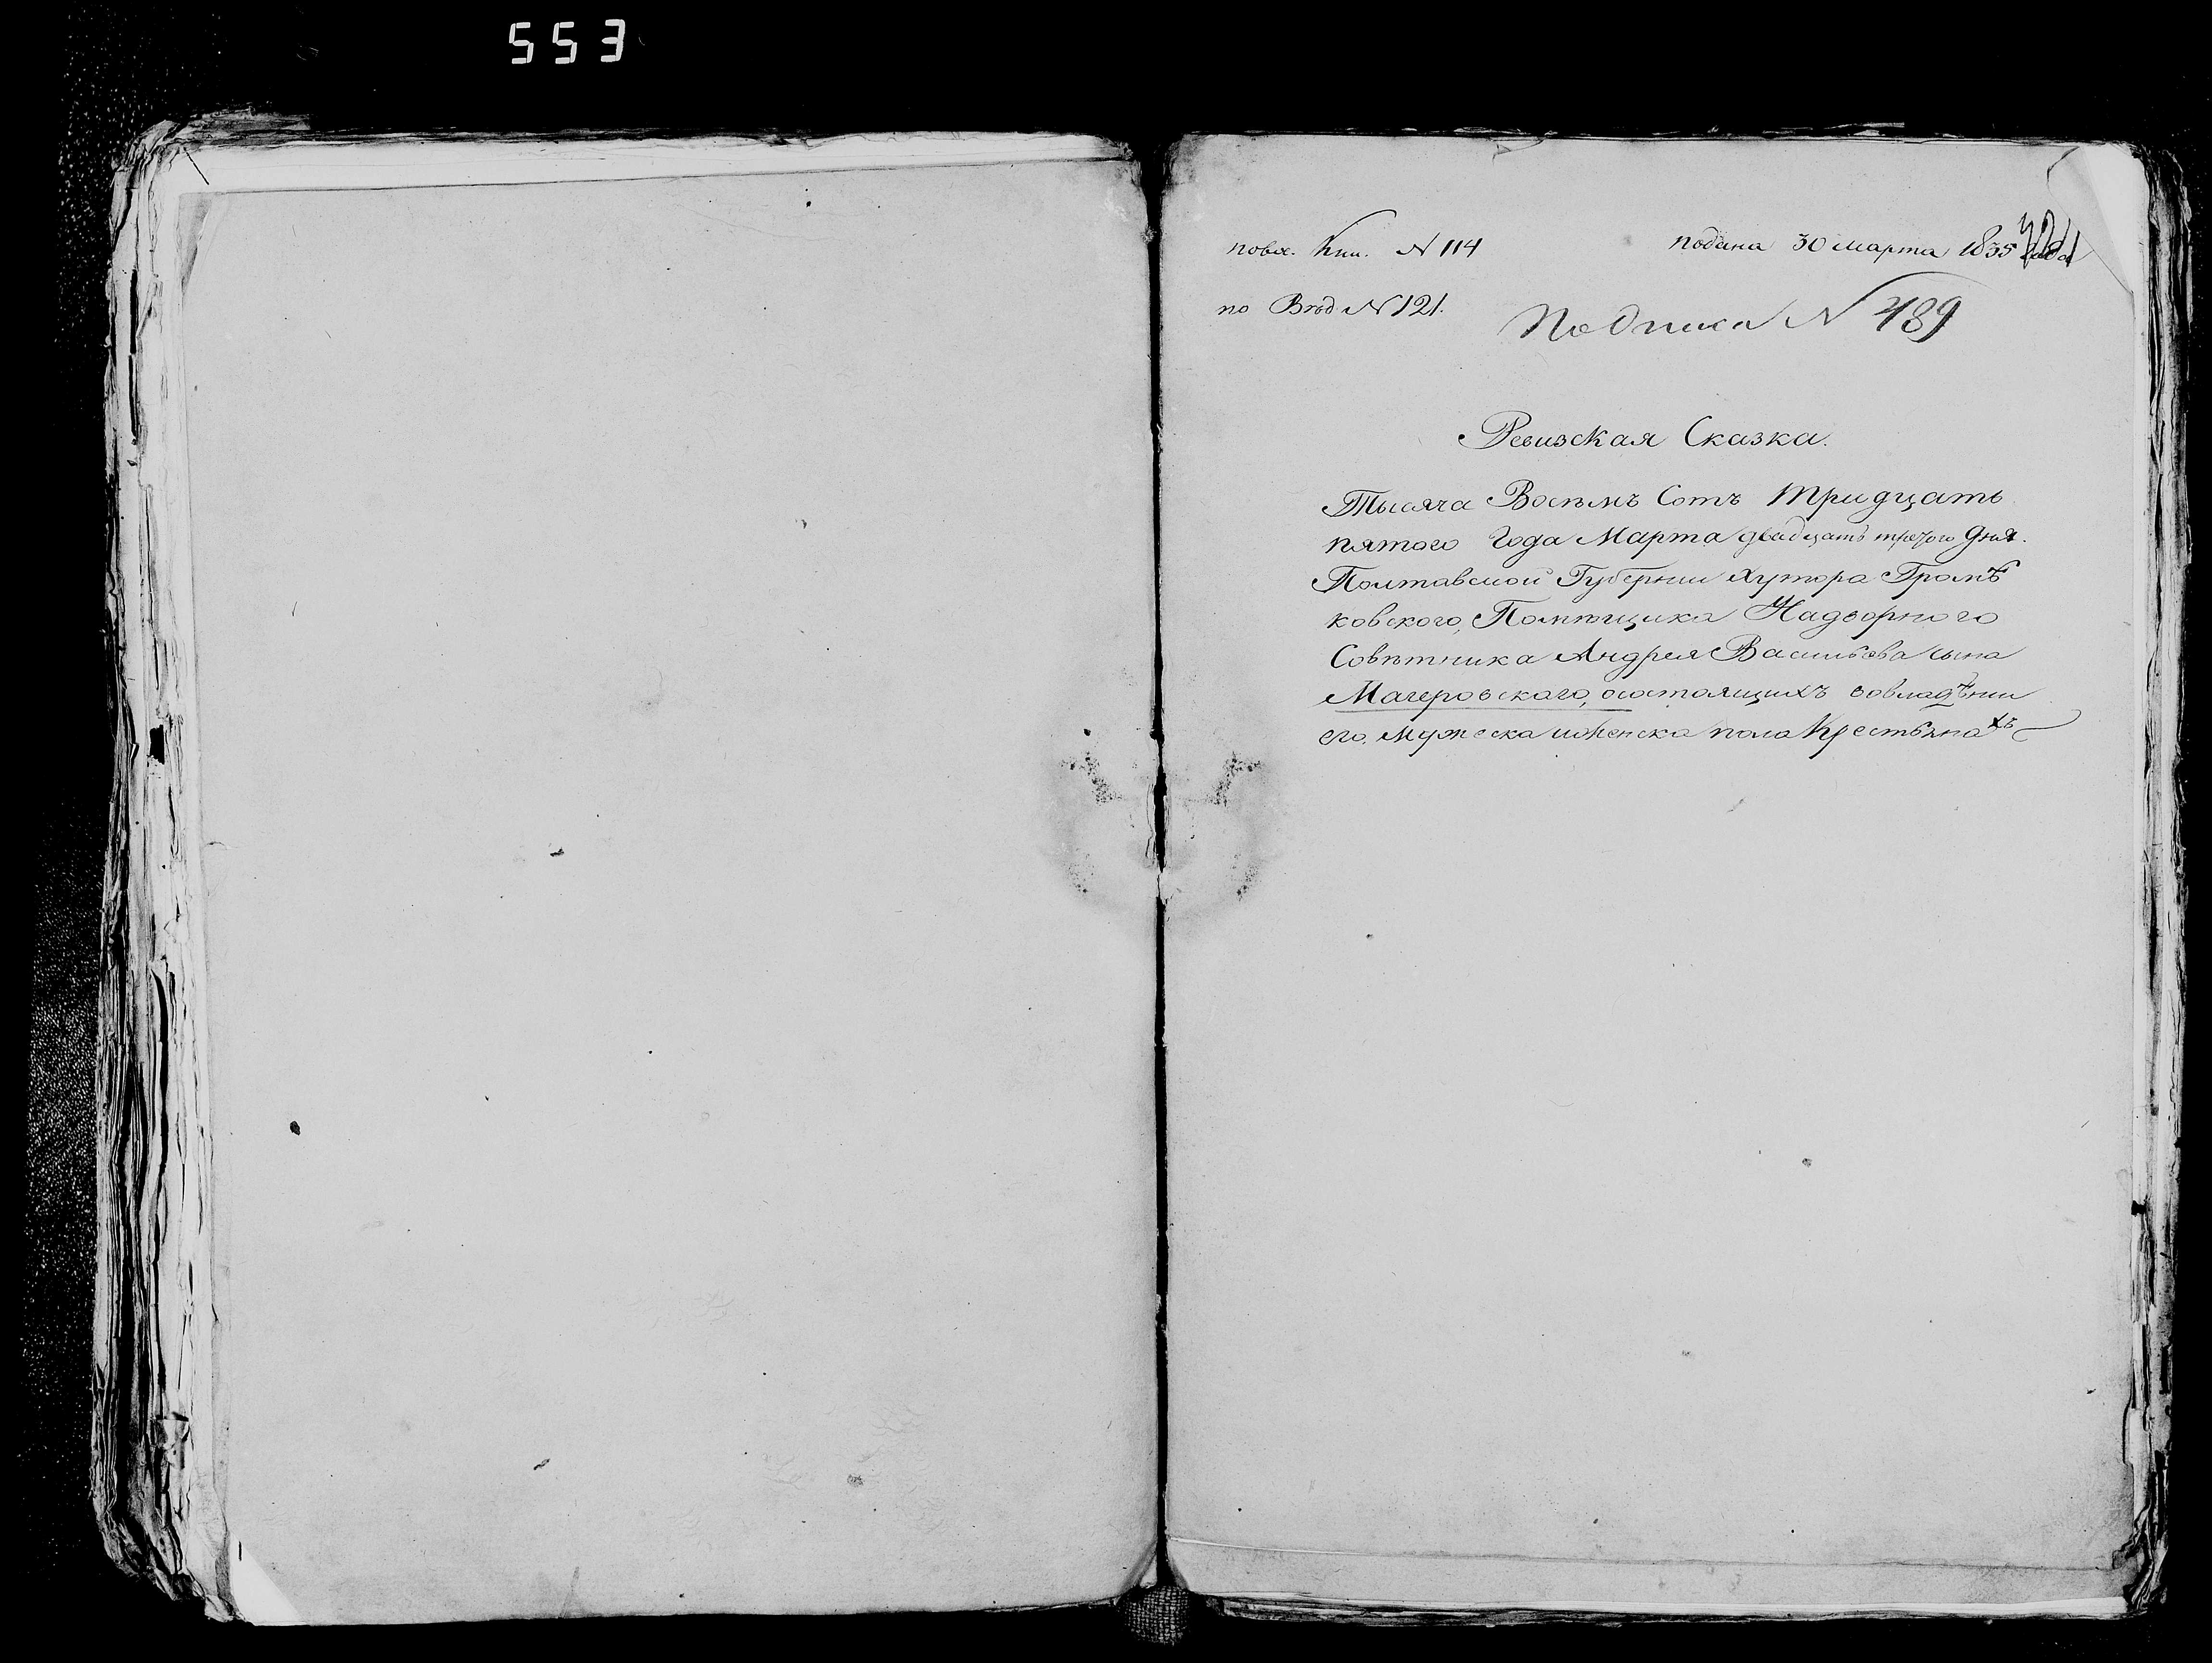 553
по вх. кни. N 114
подана 30 марта 1835 года
по Вѣд N 121.
N 489
Ревизская Сказка.
Тысяча Восемь Сотъ тридцать
пятого Года Марта двадцать третого дня.
Полтавской Губернии хутора Громѣ
ковского, Помѣщика Надворного
Совѣтника Андрея Васильева сына
Магеровского, осостоящихъ вовладѣнии
его. мужеска иженска пола Крестьянахъ